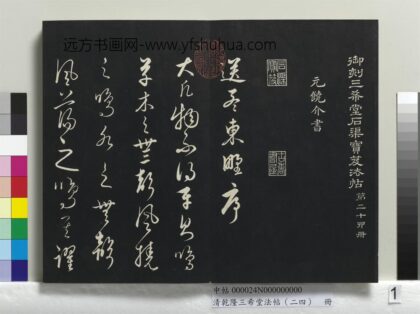 远方书画网-www.yfshuhua.com
御刻三希堂石渠寶笈法帖 第二十四册
元饒介書
送孟東野序
大凡物不得平則鳴
草木之無聲風撓
之鳴水之無聲
風蕩之鳴其躍
中帖 000024N000000000
清乾隆三希堂法帖（二四） 冊
1